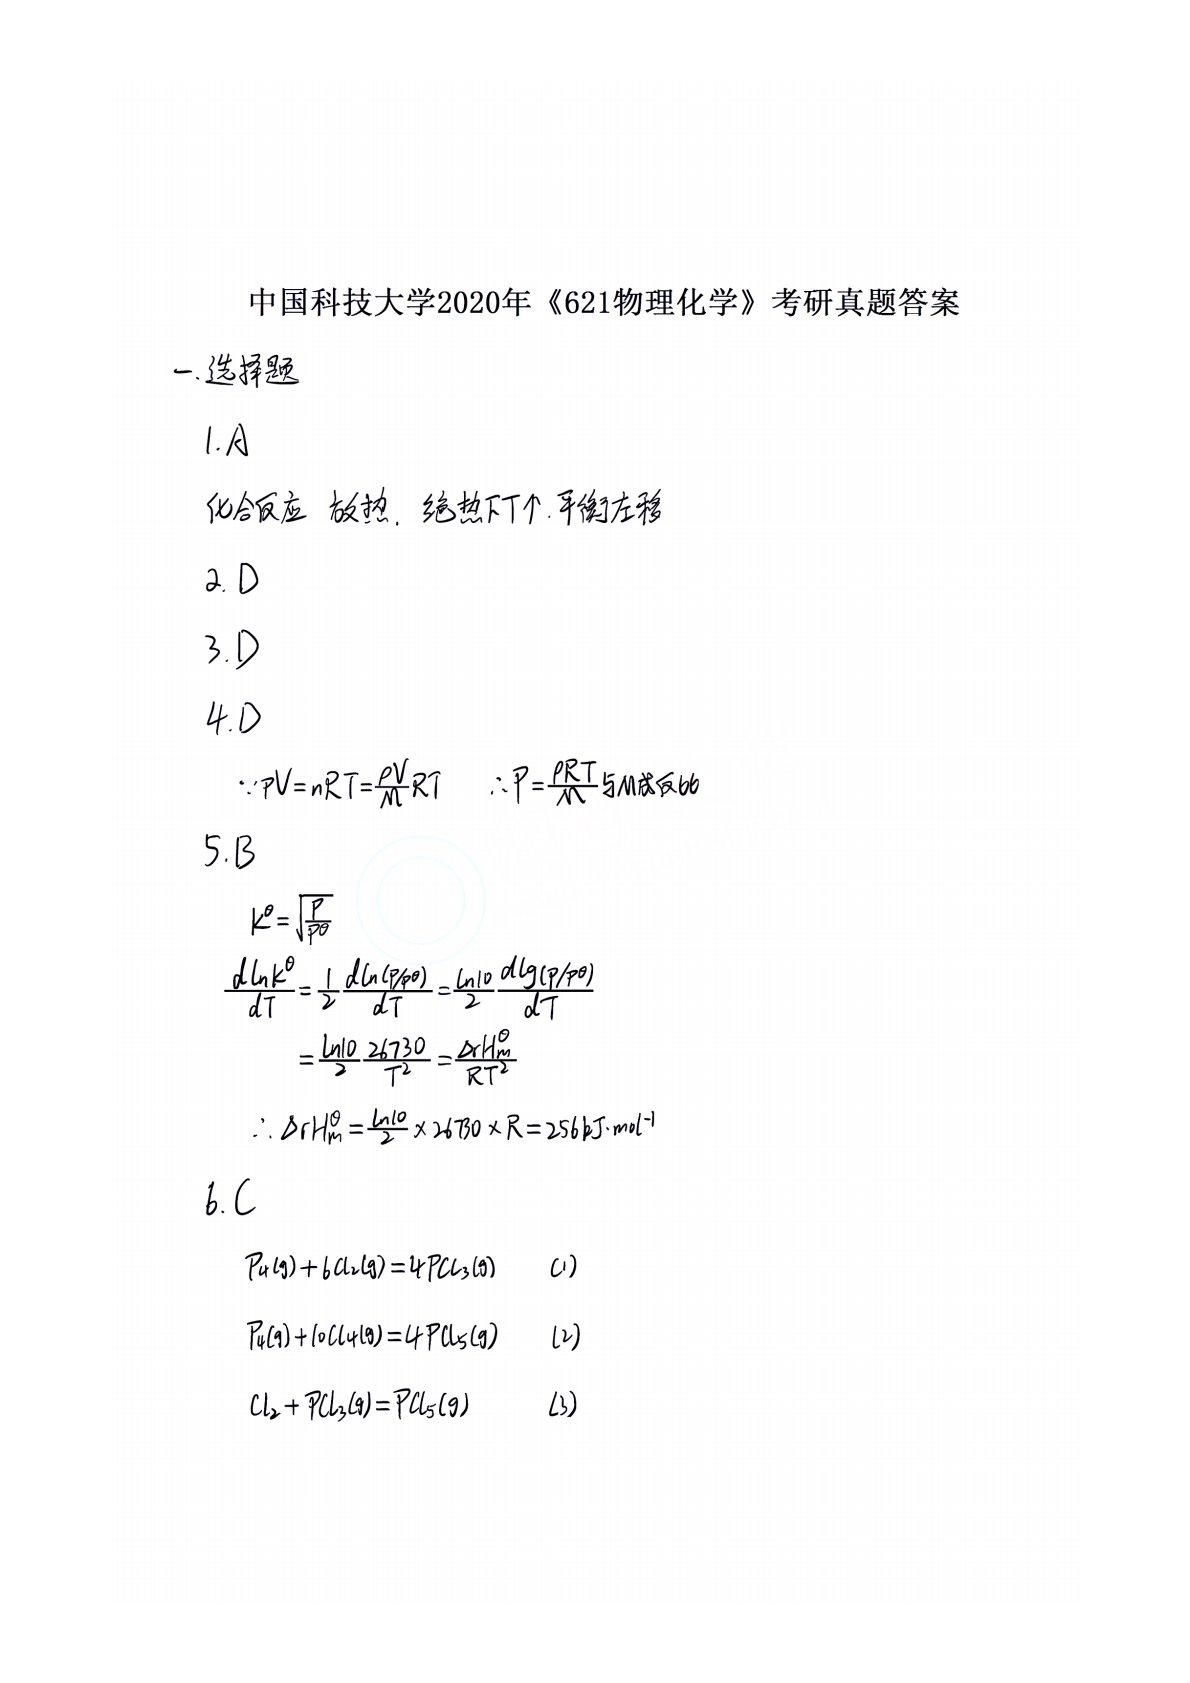 中国科技大学2020年《621物理化学》考研真题答案
一.选择题
1.A
化合反应 放热. 绝热下T↑.平衡左移
2.D
3.D
4.D
∵pV=nRT=ρV/M RT ∴P=ρRT/M 与M成反比
5.B
K^θ=√(P/P^θ)
dlnK^θ/dT=1/2 dln(P/P^θ)/dT=ln10/2 dlg(P/P^θ)/dT
=ln10/2 26730/T²=ΔrH^θ_m/RT²
∴ΔrH^θ_m=ln10/2×26730×R=256kJ·mol⁻¹
6.C
P₄(g)+6Cl₂(g)=4PCl₃(g) (1)
P₄(g)+10Cl₄(g)=4PCl₅(g) (2)
Cl₂+PCl₃(g)=PCl₅(g) (3)